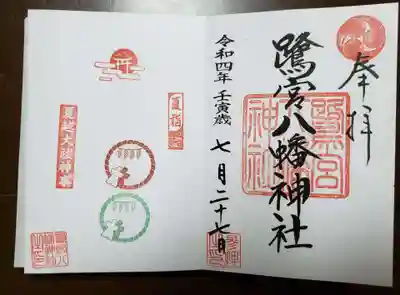 奉拝
鷺宮八幡神社
鷺宮
神社
令和四年 壬寅歳 七月二十七日
夏詣
夏越大祓神事